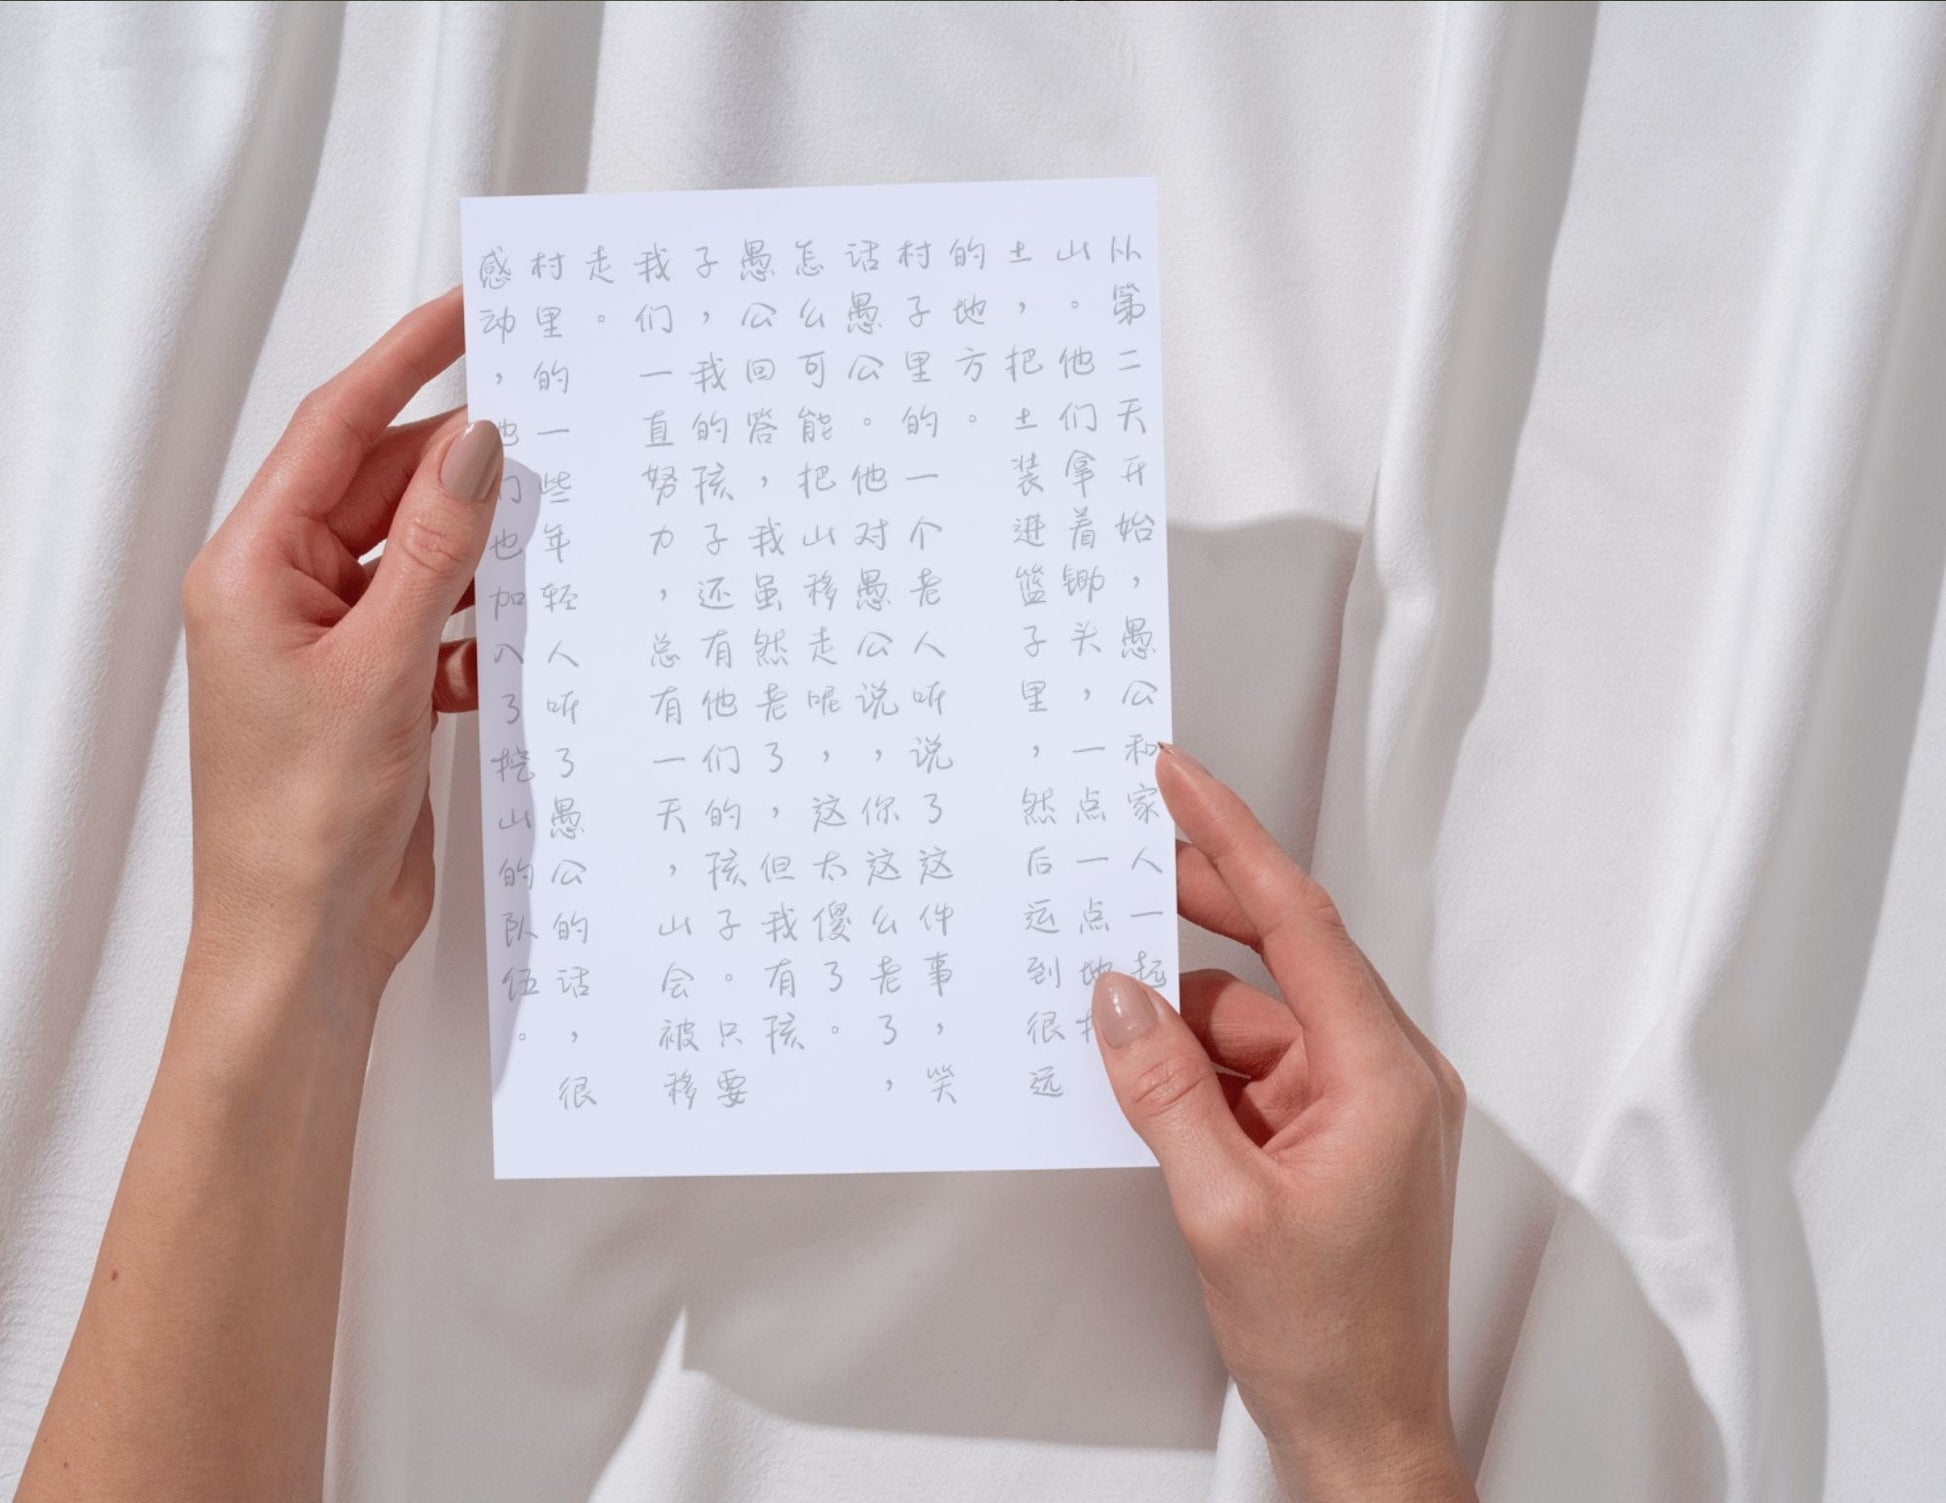 从第二天开始，愚公和家人一起
山。他们拿着锄头，一点一点地
土，把土装进篮子里，然后运到很远
的地方。
村子里的一个老人听说了这件事，笑
话愚公。他对愚公说，你这么老了，
怎么可能把山移走呢，这太傻了。
愚公回答，我虽然老了，但我有孩
子，我的孩子还有他们的孩子。只要
我们一直努力，总有一天，山会被移
走。
村里的一些年轻人听了愚公的话，很
感动，他们也加入了挖山的队伍。